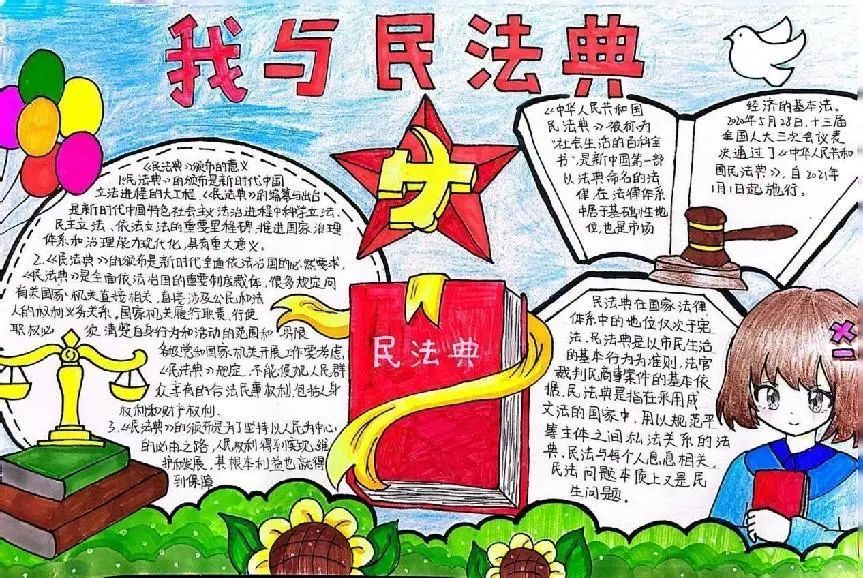 我与民法典
《民法典》颁布的意义
1.《民法典》的颁布是新时代中国
立法进程的大工程,《民法典》的编纂与出台
是新时代中国特色社会主义法治进程中科学立法、
民主立法、依法立法的重要里程碑,推进国家治理
体系和治理能力现代化,具有重大意义。
2.《民法典》的颁布是新时代全面依法治国的必然要求,
《民法典》是全面依法治国的重要制度载体,很多规定同
有关国家机关直接相关,直接涉及公民和法
人的权利义务关系。国家机关履行职责、行使
职权必须清楚自身行为和活动的范围和界限
各级党和国家机关开展工作要考虑
《民法典》规定,不能侵犯人民群
众享有的合法民事权利,包括人身
权利和财产权利。
3.《民法典》的颁布是为了坚持以人民为中心
的必由之路,人民权利得到实现、维
护和发展,其根本利益也就得
到保障
民法典
《中华人民共和国
民法典》被称为
"社会生活的百科全
书",是新中国第一部
以法典命名的法
律,在法律体系
中居于基础性地
位,也是市场
经济的基本法。
2020年5月28日,十三届
全国人大三次会议表
决通过了《中华人民共和
国民法典》,自2021年
1月1日起施行。
民法典在国家法律
体系中的地位仅次于宪
法,民法典是以市民生活
的基本行为为准则,法官
裁判民商事案件的基本依
据,民法典是指在采用成
文法的国家中,用以规范平
等主体之间私法关系的法
典,民法与每个人息息相关,
民法问题本质上又是民
生问题。